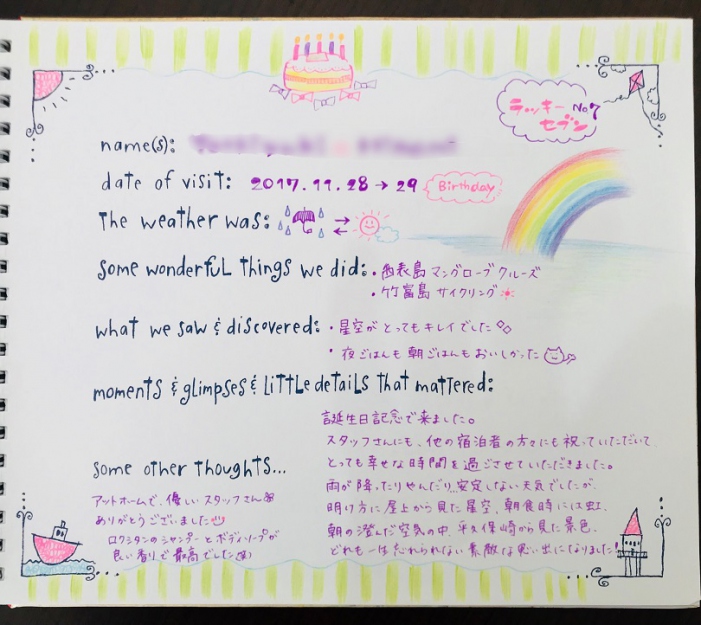 ラッキー No.7
セブン
name(s):
date of visit: 2017.11.28 → 29 Birthday
the weather was:
some wonderful things we did: ・西表島 マングローブ クルーズ
・竹富島 サイクリング
what we saw & discovered: ・星空が とっても キレイ でした
・夜ごはんも 朝ごはんも おいしかった
moments & glimpses & little details that mattered:
誕生日記念で来ました。
スタッフさんにも、他の宿泊者の方々にも祝っていただいて、
とっても幸せな時間を過ごさせていただきました。
雨が降ったりやんだり、安定しない天気でしたが、
明け方に屋上から見た星空、朝食時には虹、
朝の澄んだ空気の中、平久保崎から見た景色、
どれも一生忘れられない素敵な思い出になりました!
some other thoughts...
アットホームで、優しいスタッフさん
ありがとうございました
ロクシタンのシャンプーとボディソープが
良い香りで最高でした